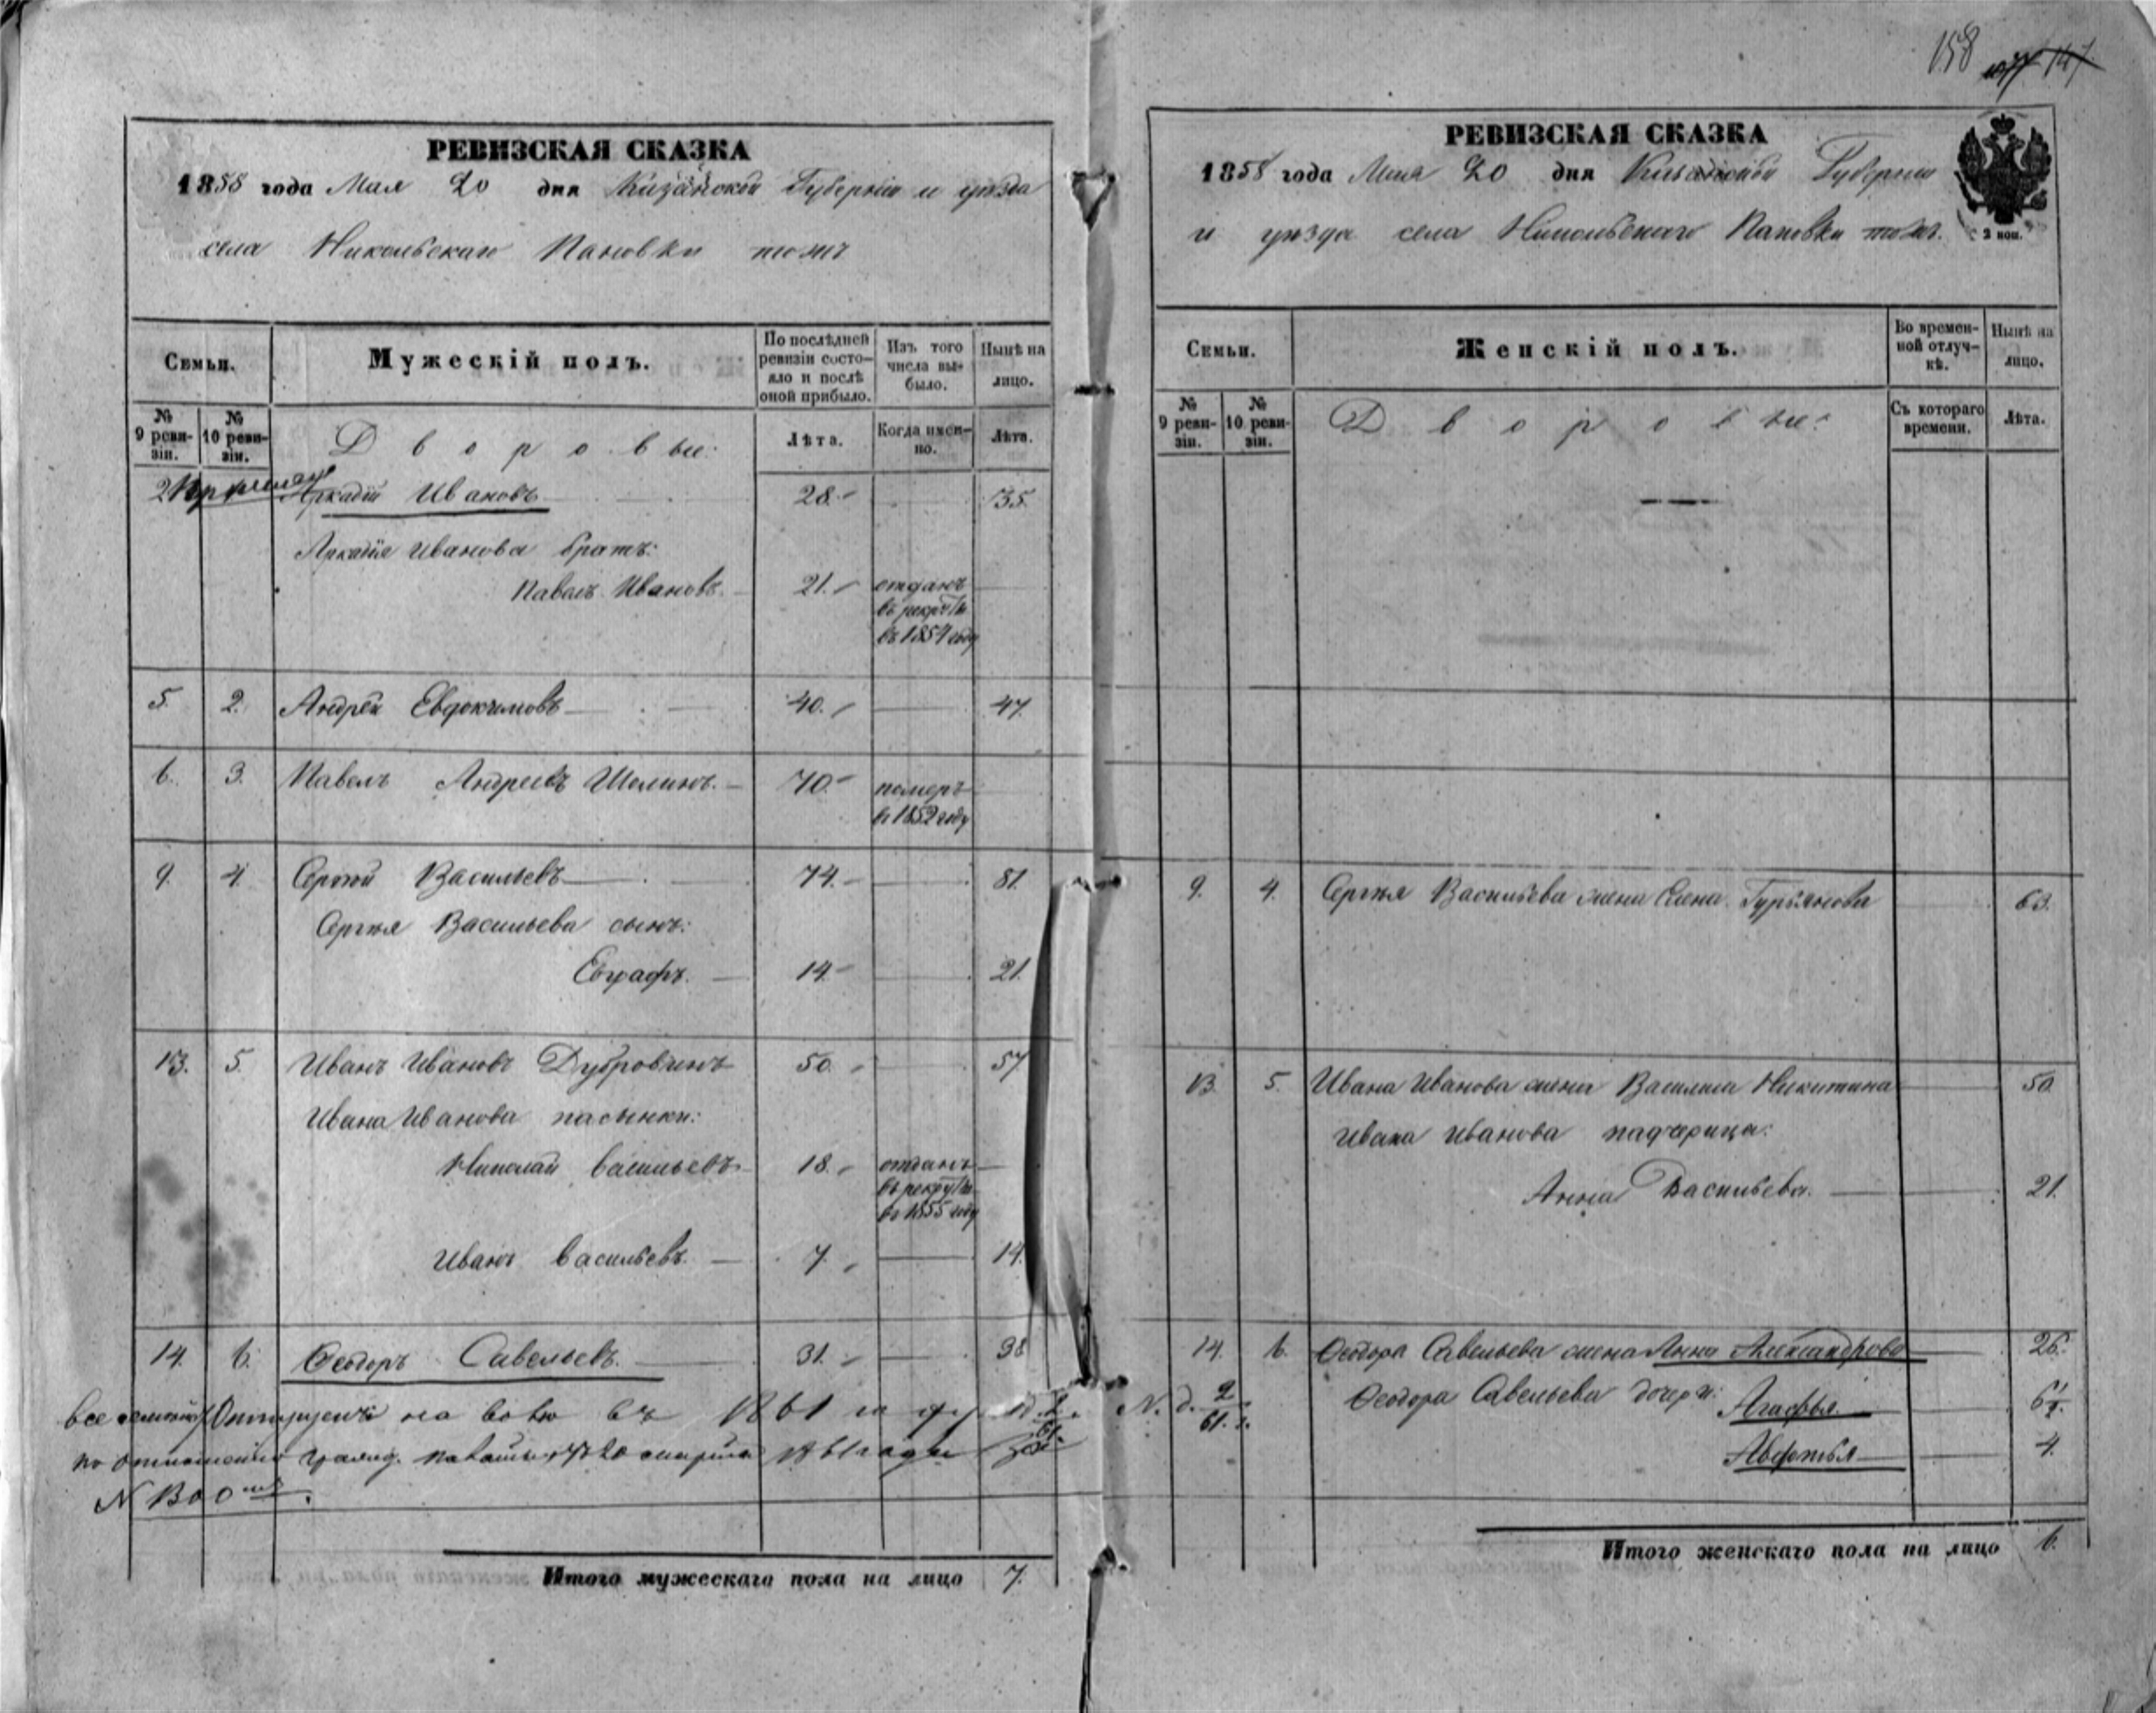 158 147
РЕВИЗСКАЯ СКАЗКА
1858 года Мая 20 дня Казанской Губерніи и уѣзда
села Никольскаго Пановки тожъ
Семьи.
Мужескій полъ.
По послѣдней ревизіи состояло и послѣ оной прибыло.
Изъ того числа выбыло.
Нынѣ на лицо.
№ 9 ревизіи.
№ 10 ревизіи.
Дворовые:
Лѣта.
Когда именно.
Лѣта.
2 Аркадій Ивановъ 28. 35.
Аркадія Иванова братъ:
Павелъ Ивановъ. 21. отданъ
въ рекруты
въ 1854 году
5. 2. Андрей Евдокимовъ 40. 47.
6. 3. Павелъ Андреевъ Шалинъ. 70. померъ
въ 1852 году
9. 4. Сергей Васильевъ 74. 81.
Сергѣя Васильева сынъ:
Евграфъ. 14. 21.
13. 5. Иванъ Ивановъ Дубровинъ 50. 57
Ивана Иванова пасынки:
Николай Васильевъ 18. отданъ
въ рекруты
въ 1855 году
Иванъ Васильевъ. 7. 14.
14. 6. Ѳеодоръ Савельевъ. 31. 38
все семейство Отпущенъ на волю въ 1861 году
по отношенію 20 марта 1861 года
N 1300
Итого мужескаго пола на лицо 7.
РЕВИЗСКАЯ СКАЗКА
1858 года Мая 20 дня Казанской Губерніи
и уѣзда села Никольскаго Пановки тожъ.
2 коп.
Семьи.
Женскій полъ.
Во временной отлучкѣ.
Нынѣ на лицо.
№ 9 ревизіи.
№ 10 ревизіи.
Дворовые:
Съ котораго времени.
Лѣта.
9. 4. Сергѣя Васильева жена Елена Гурьянова 63.
13. 5. Ивана Иванова жена Василиса Никитина 50.
Ивана Иванова падчерица:
Анна Васильева. 21.
14. 6. Ѳеодора Савельева жена Анна Александрова 26.
N. д. 2/61. г. Ѳеодора Савельева дочери: Агафья 6
Авдотья 4.
Итого женскаго пола на лицо 6.